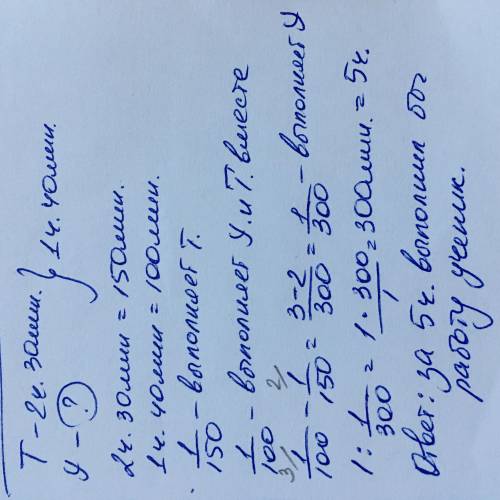 Т – 2ч. 30мин. } 1ч. 40мин.
У – ?
2ч. 30мин = 150мин.
1ч. 40мин = 100мин.
1/150 – выполняет Т.
1/100 – выполняет У. и Т. вместе
3/ 1/100 – 2/ 1/150 = 3-2/300 = 1/300 – выполняет У
1 : 1/300 = 1·300/1 = 300мин. = 5ч.
Ответ: за 5ч. выполнил
работу ученик.